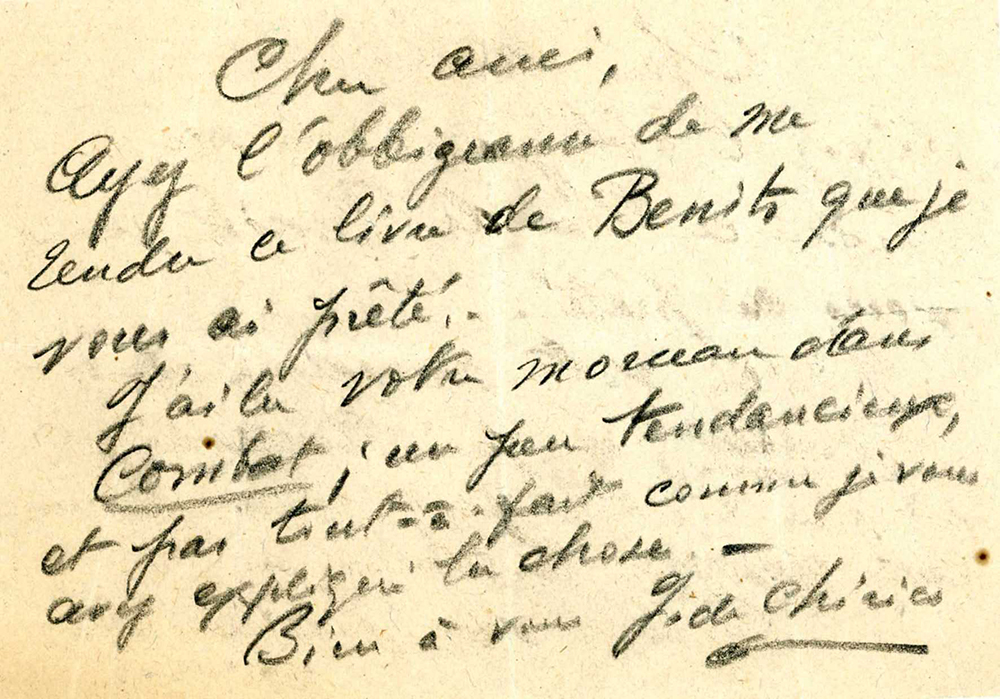 Cher ami,
Ayez l'obbligeance de me
rendre ce livre de Benito que je
vous ai prêté.
J'ai lu votre morceau dans
Combat; un peu tendancieux,
et pas tout-à-fait comme je vous
avez expliqué la chose. —
Bien à vous G. de Chirico